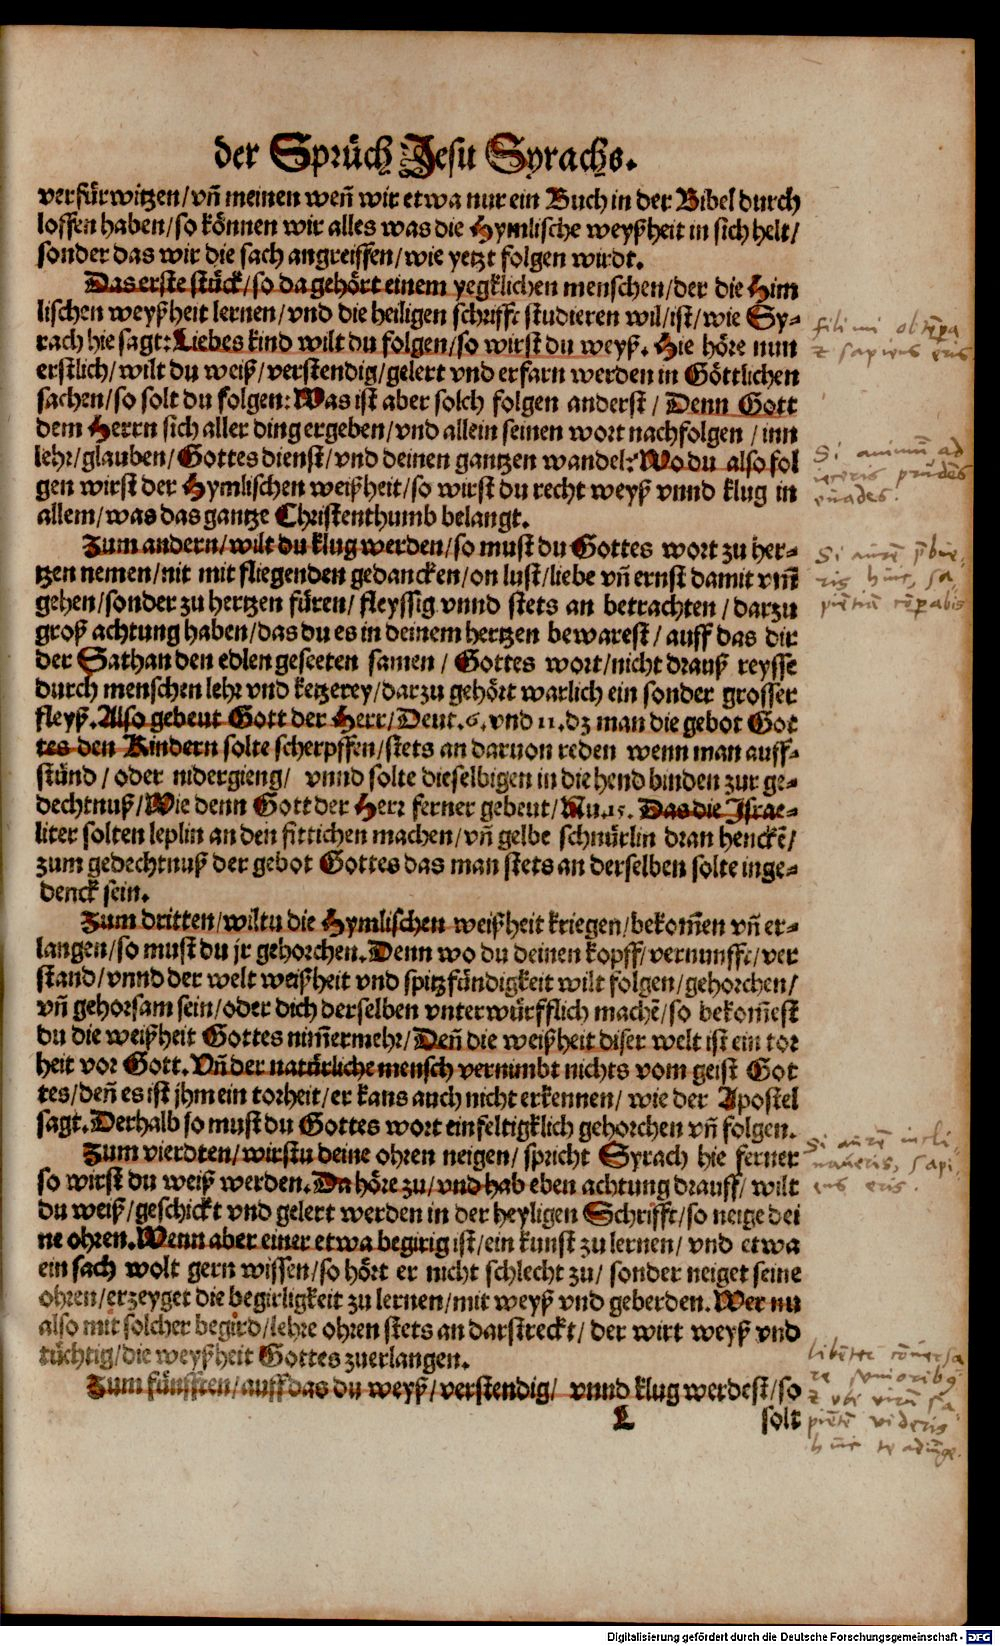 der Sprüch Jesu Syrachs.
verfürwitzen/ vn̄ meinen wen̄ wir etwa nur ein Buch in der Bibel durch
loffen haben/ so können wir alles was die Hymlische weyßheit in sich helt/
sonder das wir die sach angreiffen/ wie yetzt folgen wirdt.
Das erste stück/ so da gehört einem yegklichen menschen/ der die Him
lischen weyßheit lernen/ vnd die heiligen schrifft studieren wil/ ist/ wie Sy-
rach hie sagt: Liebes kind wilt du folgen/ so wirst du weyß. Hie höre nun
erstlich/ wilt du weiß/ verstendig/ gelert vnd erfarn werden in Göttlichen
sachen/ so solt du folgen: Was ist aber solch folgen anderst/ Denn Gott
dem Herrn sich aller ding ergeben/ vnd allein seinen wort nachfolgen/ inn
lehr/ glauben/ Gottes dienst/ vnd deinen gantzen wandel: Wo du also fol
gen wirst der Hymlischen weißheit/ so wirst du recht weyß vnnd klug in
allem/ was das gantze Christenthumb belangt.
Zum andern/ wilt du klug werden/ so must du Gottes wort zu her-
tzen nemen/ nit mit fliegenden gedancken/ on lust/ liebe vn̄ ernst damit vm̄
gehen/ sonder zu hertzen füren/ fleyssig vnnd stets an betrachten/ darzu
groß achtung haben/ das du es in deinem hertzen bewarest/ auff das dir
der Sathan den edlen geseeten samen/ Gottes wort/ nicht drauß reysse
durch menschen lehr vnd ketzerey/ darzu gehört warlich ein sonder grosser
fleyß. Also gebeut Gott der Herr/ Deut. 6. vnd 11. dz man die gebot Got
tes den Kindern solte scherpffen/ stets an daruon reden wenn man auff-
stünd/ oder nidergieng/ vnnd solte dieselbigen in die hend binden zur ge-
dechtnuß/ Wie denn Gott der Herr ferner gebeut/ Nu. 15. Das die Israe-
liter solten leplin an den fittichen machen/ vn̄ gelbe schnürlin dran henckē/
zum gedechtnuß der gebot Gottes das man stets an derselben solte inge-
denck sein.
Zum dritten/ wiltu die Hymlischen weißheit kriegen/ bekom̄en vn̄ er-
langen/ so must du jr gehorchen. Denn wo du deinen kopff/ vernunfft/ ver
stand/ vnnd der welt weißheit vnd spitzfündigkeit wilt folgen/ gehorchen/
vn̄ gehorsam sein/ oder dich derselben vnterwürfflich machē/ so bekom̄est
du die weißheit Gottes nim̄ermehr/ Den̄ die weißheit diser welt ist ein tor
heit vor Gott. Vn̄ der natürliche mensch vernimbt nichts vom geist Got
tes/ den̄ es ist jhm ein torheit/ er kans auch nicht erkennen/ wie der Apostel
sagt. Derhalb so must du Gottes wort einfeltigklich gehorchen vn̄ folgen.
Zum vierdten/ wirstu deine ohren neigen/ spricht Syrach hie ferner
so wirst du weiß werden. Da höre zu/ vnd hab eben achtung drauff/ wilt
du weiß/ geschickt vnd gelert werden in der heyligen Schrifft/ so neige dei
ne ohren. Wenn aber einer etwa begirig ist/ ein kunst zu lernen/ vnd etwa
ein sach wolt gern wissen/ so hört er nicht schlecht zu/ sonder neiget seine
ohren/ erzeyget die begirligkeit zu lernen/ mit weyß vnd geberden. Wer nu
also mit solcher begird/ lehre ohren stets an darstreckt/ der wirt weyß vnd
tüchtig/ die weyßheit Gottes zuerlangen.
Zum fünfften/ auff das du weyß/ verstendig/ vnnd klug werdest/ so
L solt
fili mi obtēpa
& sapiens eris
Si animū ad
prudēs
euades.
Si aurē p̄bue-
ris hinc, sa-
piētiā
Si aurē incli
naueris, sapi-
ens eris.
libēter cōuersa
re senioribꝫ
& vbi virū sa
piētē videris
huic te adiūge.
Digitalisierung gefördert durch die Deutsche Forschungsgemeinschaft - DFG